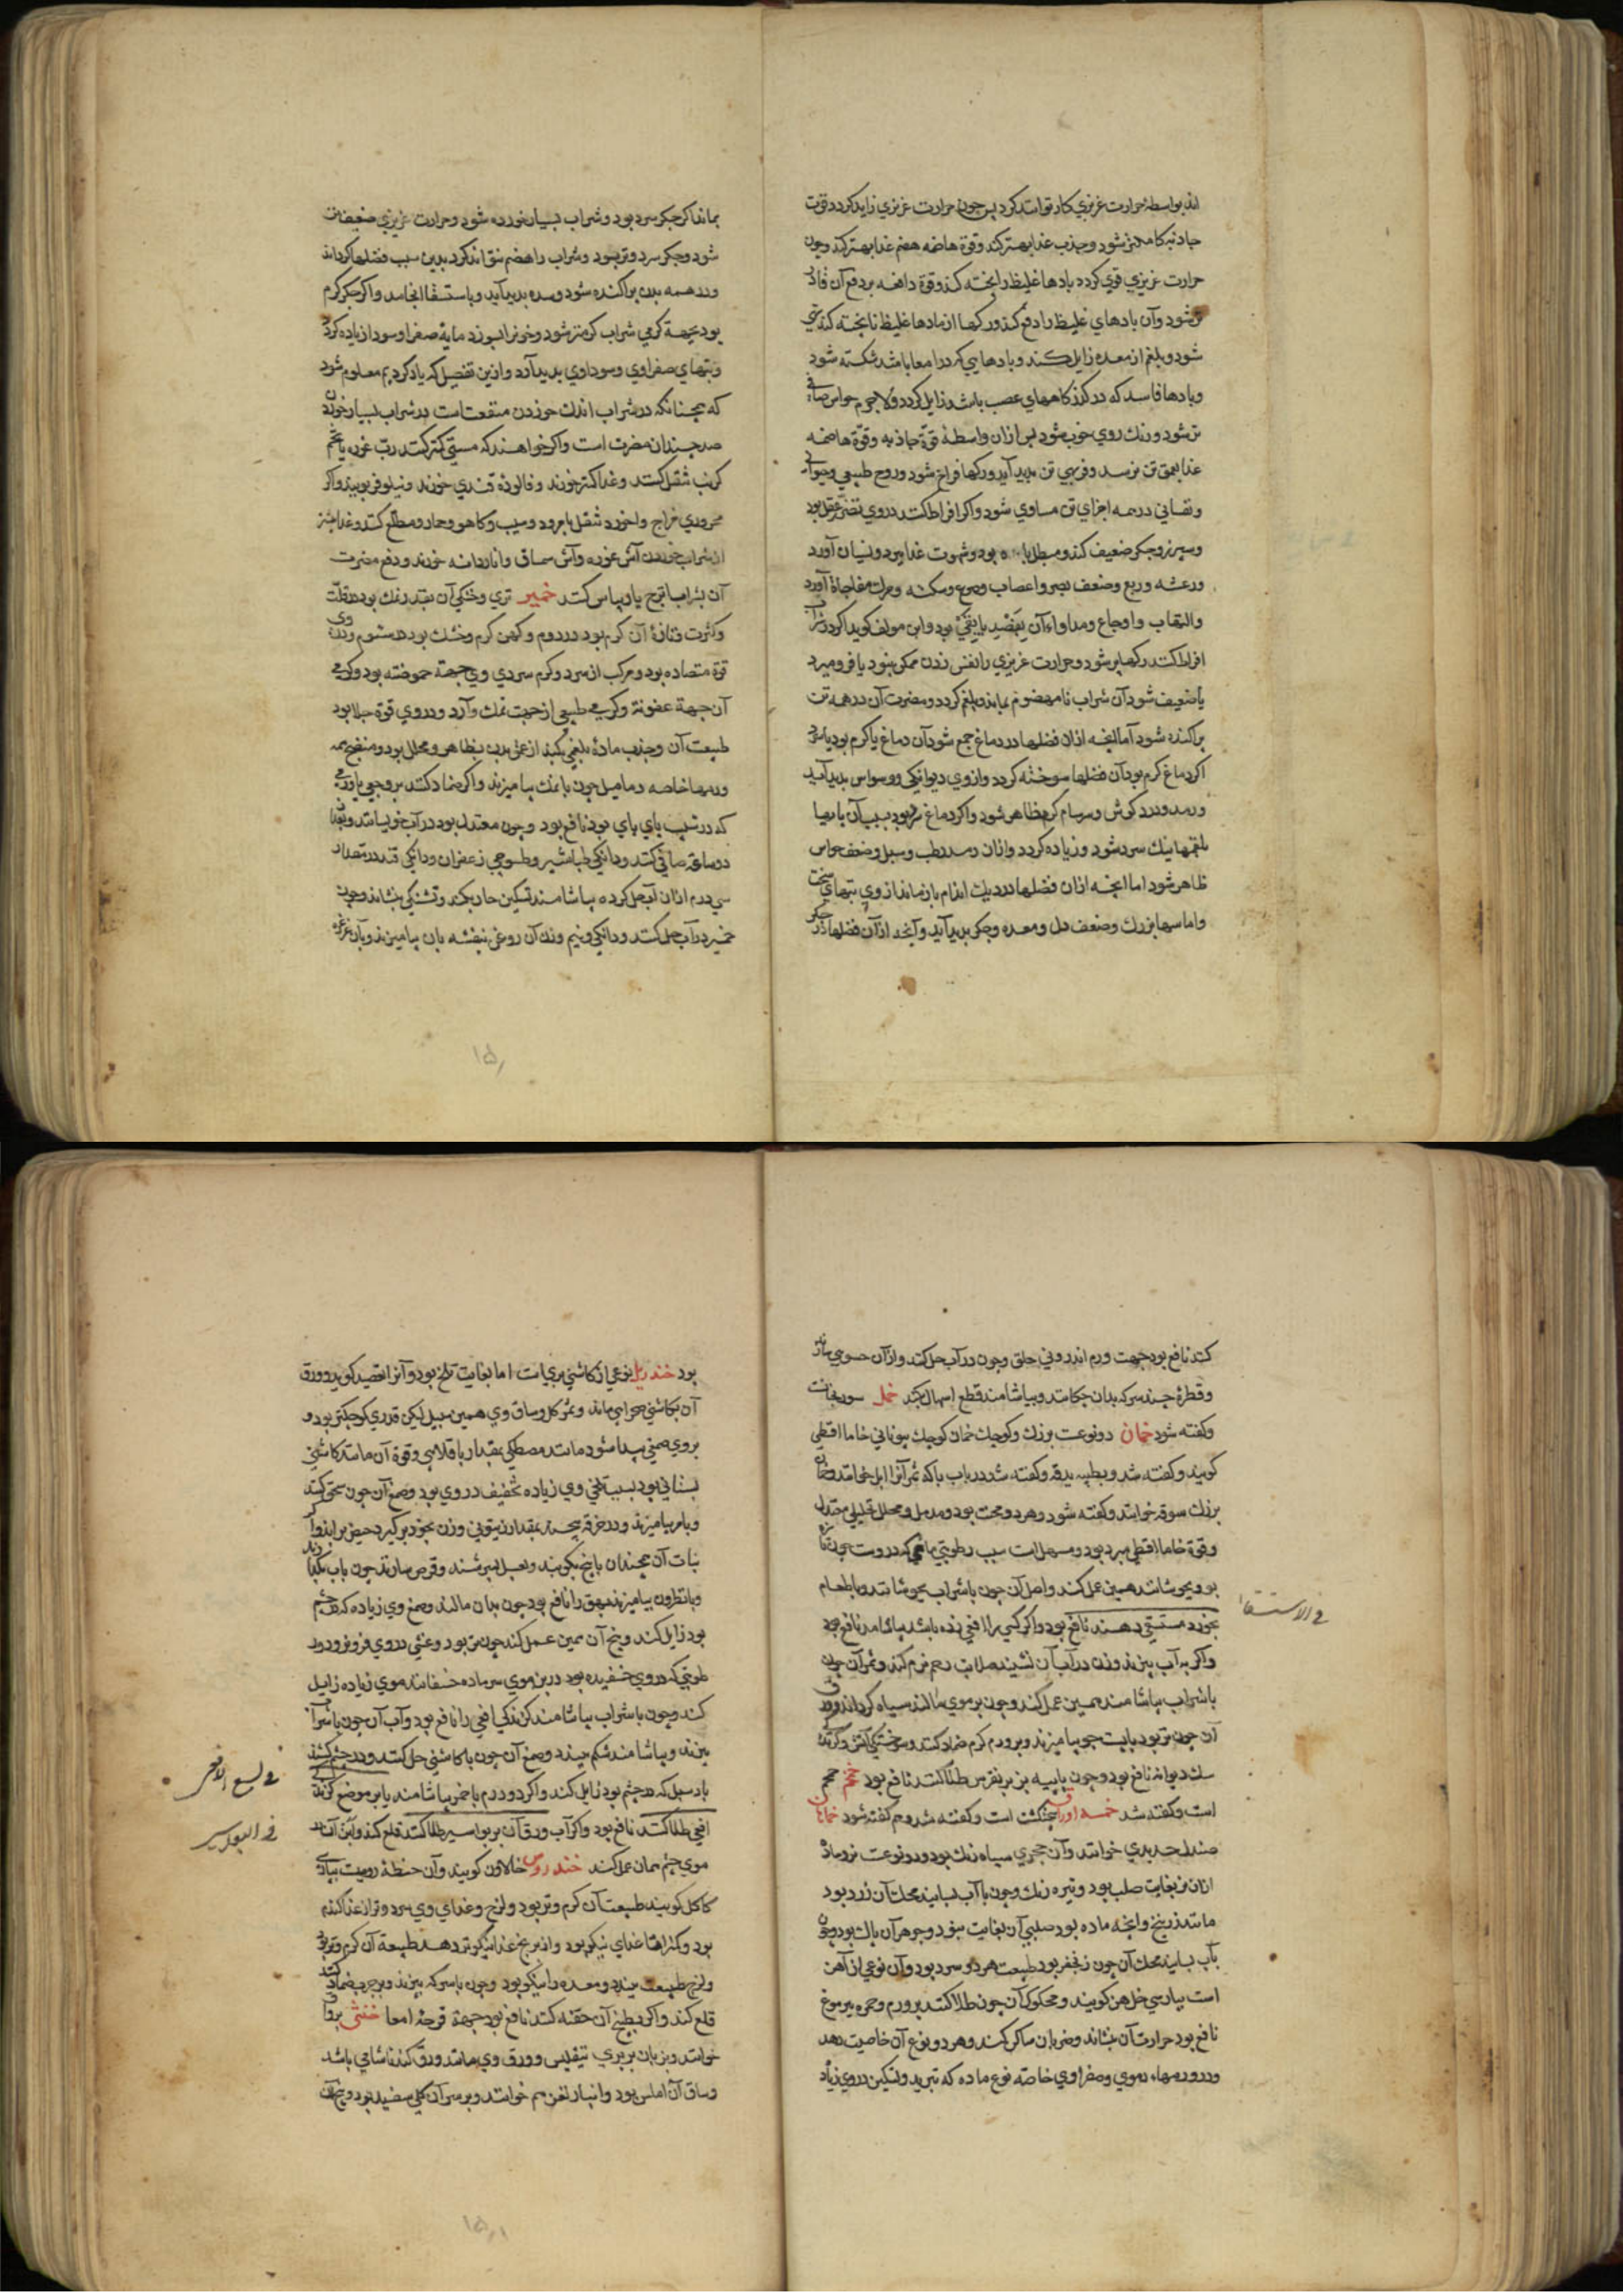 اند بواسطه حرارت غریزي کار توانند کرد پس چون حرارت غریزي زاید کردد قوت
جاذبه کاملتر شود و جذب غذا بهتر کند و قوة هاضمه هضم غذا بهتر کند و چون
حرارت غریزي قوي کردد بادها غلیظ را پخته کند و قوة دافعه بر دفع آن قادر
تر شود و آن بادهاي غلیظ را دفع کند و رکها از بادها غلیظ ناپخته کند تهي
شود و بلغم از معده زایل کند و بادهایي که در امعا باشد شکسته شود
و بادها فاسد که در کذرکاههاي عصب باشد زایل کردد و لاجرم حواس صافي
تر شود و رنك روي خوب شود پس ازان واسطهٔ قوّة جاذبه و قوّة هاضمه
غذا بعمق تن برسد و فربهي تن پدید آید و رکها فراخ شود و روح طبیعي و حیواني
و نفساني در همه اجزاي تن مساوي شود و اکر افراط کنند در وي تضرر عقل بود
و سپرز و جکر ضعیف کند و مبطل باه بود و شهوت غذا ببرد و نسیان آورد
و رعشه و ربع و ضعف بصر و اعصاب و صرع و سکته و مرك مفاجاة آورد
و التهاب و اوجاع و مداواء آن بفصد یا بقي بود و این مولف کوید اکر در شراب
افراط کنند رکها پر شود و حرارت غریزي را نفس زدن ممکن نبود یا فرو میرد
یا ضعیف شود آن شراب نامهضوم بماند و بلغم کردد و مضرت آن در همه تن
پراکنده شود اما آنچه ازان فضلها در دماغ جمع شود آن دماغ یا کرم بود یا سرد
اکر دماغ کرم بود آن فضلها سوخته کردد و از وي دیوانکي و وسواس پدید آید
و رمد و درد کوش و سرسام کرم ظاهر شود و اکر دماغ سرد بود بسبب آن بادها
بلغمها نیك سرد شود و زیاده کردد و ازان رمد رطب و سبل و ضعف حواس
ظاهر شود اما آنچه ازان فضلها در دیك اندام باز ماند از وي تبهاي سخت
و آماسها بزرك و ضعف دل و معده و جکر پدید آید و آنچه از آن فضلها در جکر
بماند اکر جکر سرد بود و شراب بسیار خورده شود و حرارت غریزي ضعیف
شود و جکر سرد و تر شود و شراب را هضم نتواند کرد بدین سبب فضلها کرد آند
و در همه بدن پراکنده شود و سده پدید آید و باستسقا انجامد و اکر جکر کرم
بود بجهة کرمي شراب کرمتر شود و خون را بسوزد مایهٔ صفرا و سودا زیاده کردد
و تبهاي صفراوي و سوداوي پدید آرد و ازین تفصیل که یاد کردیم معلوم شود
که همچنانکه در شراب اندك خوردن منفعت است در شراب بسیار خوردن
صد چندان مضرت است و اکر خواهند که مستي کمتر کند رب غوره یا تخم
کرنب نقل کنند و غذا کمتر خورند و فالوذهٔ قندي خورند و نیلوفر بویند و اکر
محروري مزاج را خورد نقل بامرود و سیب و کاهو و خیار و مطلع کند و غذا پیش
از شراب خوردن آش غوره و آش سماق و اناردانه خورند و دفع مضرت
آن بشراب اترج یا ریباس کنند خمیر تري و خشکي آن بقدر نمك بود در قلت
و کثرت و تازهٔ آن کرم بود در دوم و کهن کرم و خشك بود در سیوم و در وي
قوة متضاده بود و مرکب از سرد و کرم سردي وي جهة حموضته بود و کرمي
آن جهة عفونة و کرمي طبیعي از جهت نمك و آرد و در وي قوة جلا بود
طبیعت آن و جذب مادهٔ بلغمي بکند از عمق بدن بظاهر و محلل بود و منضج همه
ورمها خاصه دمامیل چون با نمك بیامیزند و اکر ضماد کنند بر وجعي یا ورمي
که در شیب پاي بود نافع بود و چون معتدل بود در آب خویسانند و بعد از
دو ساعة صافي کنند و دانکي طباشیر و طسوجي زعفران و دانکي قند در مقدار
سي درم ازان آب حل کرده بیاشامند تسکین حار بکند و تشنکي بنشاند و چون
خمیر در آب حل کنند و دانکي و نیم وزن آن روغن بنفشه بان بیامیزند و بآن غرغره
۱۵۰
کنند نافع بود جهت ورم اندروني حلق و چون در آب حل کنند و از آن حسوي سازند
و قطرهٔ چند سرکه بدان چکانند و بیاشامند قطع اسهال بکند خمل سورنجانست
و کفته شود خمان دو نوعست بزرك و کوچك خمان کوچك بیوناني خاما اقطي
کویند و کفته شد و بطبیه یدقه و کفته شد در باب با که ثمر آنرا ابل خوانند و خمان
بزرك سوقه خوانند و کفته شود و هر دو مجفف بود و مدمل و محلل تحلیلي معتدل
و قوة خاما اقطي مبرد بود و مسهلست سبب رطوبتي مایي که دروست چون تازه
بود بجوشانند همین عمل کند و اصل آن چون با شراب بجوشانند و با طعام
بخورد مستسقي دهند نافع بود و اکر کسي را افعي زده باشد بیاشامد نافع بود
و اکر به آب بپزند و زن در آب آن نشیند صلابت رحم نرم کند و ثمر آن چون
با شراب بیاشامند همین عمل کند و چون بر موي مالند سیاه کرداند و ورق
آن چون تر بود با پست جو بیامیزند و بر ورم کرم ضماد کنند و سوختکي آتش و کزند
سك دیوانه نافع بود و چون با پیه بز بر نقرس طلا کنند نافع بود خمخم حمحم
است و کفته شد خمسه اوراق پنجنکشت است و کفته شد و هم کفته شود خماهان
صندل حدیدي خوانند و آن حجري سیاه رنك بود و دو نوعست نر و ماده
ازان نر بغایت صلب بود و تیره رنك و چون با آب بسایند محك آن زرد بود
مانند زرنیخ و انچه ماده بود صلبي آن بغایت نبود و جوهر آن پاك بود و چون
بآب بسایند محك آن چون زنجفر بود طبیعت هر دو سرد بود و آن نوعي از آهن
است بپارسي خل هن کویند و محکوك آن چون طلا کنند بر ورم و حمره بر مرغ
نافع بود حرارت آن بنشاند و ضربان ساکن کند و هر دو نوع آن خاصیت دهد
و در ورمهاء دموي و صفراوي خاصه نوع ماده که تبرید و تسکین در وي زیاده
في الاستسقا
بود خندریل نوعي از کاشني بریست اما بغایت تلخ بود و آنرا یعضید کویند و ورق
آن بکاشني صحرایي ماند و ثمر کل و ساق وي همین سبیل لیکن قدري کوچکتر بود و
بر وي صمغي پیدا شود مانند مصطکي بمقدار باقلایي و قوة آن مانند کاشني
بستاني بود بسبب تلخي وي زیاده تجفیف در وي بود و صمغ آن چون سحق کنند
و با مر بیامیزند و در خرقه پیچند بمقدار زیتوني و زن بخود برکیرد حیض براند و اکر
نبات آن همچندان با بیخ بکوبند و بعسل بسرشند و قرص سازند چون بآب بکدازند
و با نطرون بیامیزند بهق را نافع بود چون بدان مالند و صمغ وي زیاده که در چشم
بود زایل کند و بیخ آن همین عمل کند چون تر بود و غشي در وي فرو برد و در
طوبتي که در وي خسفیده بود در بن موي سرماده خسفانند موي زیاده زایل
کند و چون با شراب بیاشامند کزندکي افعي را نافع بود و آب آن چون با شراب
بپزند و بیاشامند شکم ببندد و صمغ آن چون با کاشني حل کنند و در چشم کشند
باد سبل که در چشم بود زایل کند و اکر دو درم با خمر بیاشامند یا بر موضع کزندکي
افعي طلا کنند نافع بود و اکر آب ورق آن بر بواسیر طلا کنند قلع کند و لبن آن در
موي چشم همان عمل کند خندروس خلاون کویند و آن حنطهٔ رومیست بپارسي
کاکل کویند طبیعت آن کرم و تر بود و لزج و غذاي وي سرد و تر از غذا کندم
بود و کثیر الغذا غذاي نیکو بود و از برنج غذا نیکوتر دهد طبیعة آن کرم و تر بود
و لزج طبیعت ببندد و معده را نیکو بود و چون با سرکه بپزند و بر جرب ضماد کنند
قلع کند و اکر بطبیخ آن حقنه کنند نافع بود جهة قرحهٔ امعا خنثي برواق
خوانند و بزبان بربري تیقلیس و ورق وي مانند ورق کندنا شامي باشد
و ساق آن املس بود و انبارلغن هم خوانند و بر سر آن کلي سفید بود و بیخ آن
في لسع الافعي
في البواسیر
۱۵۱